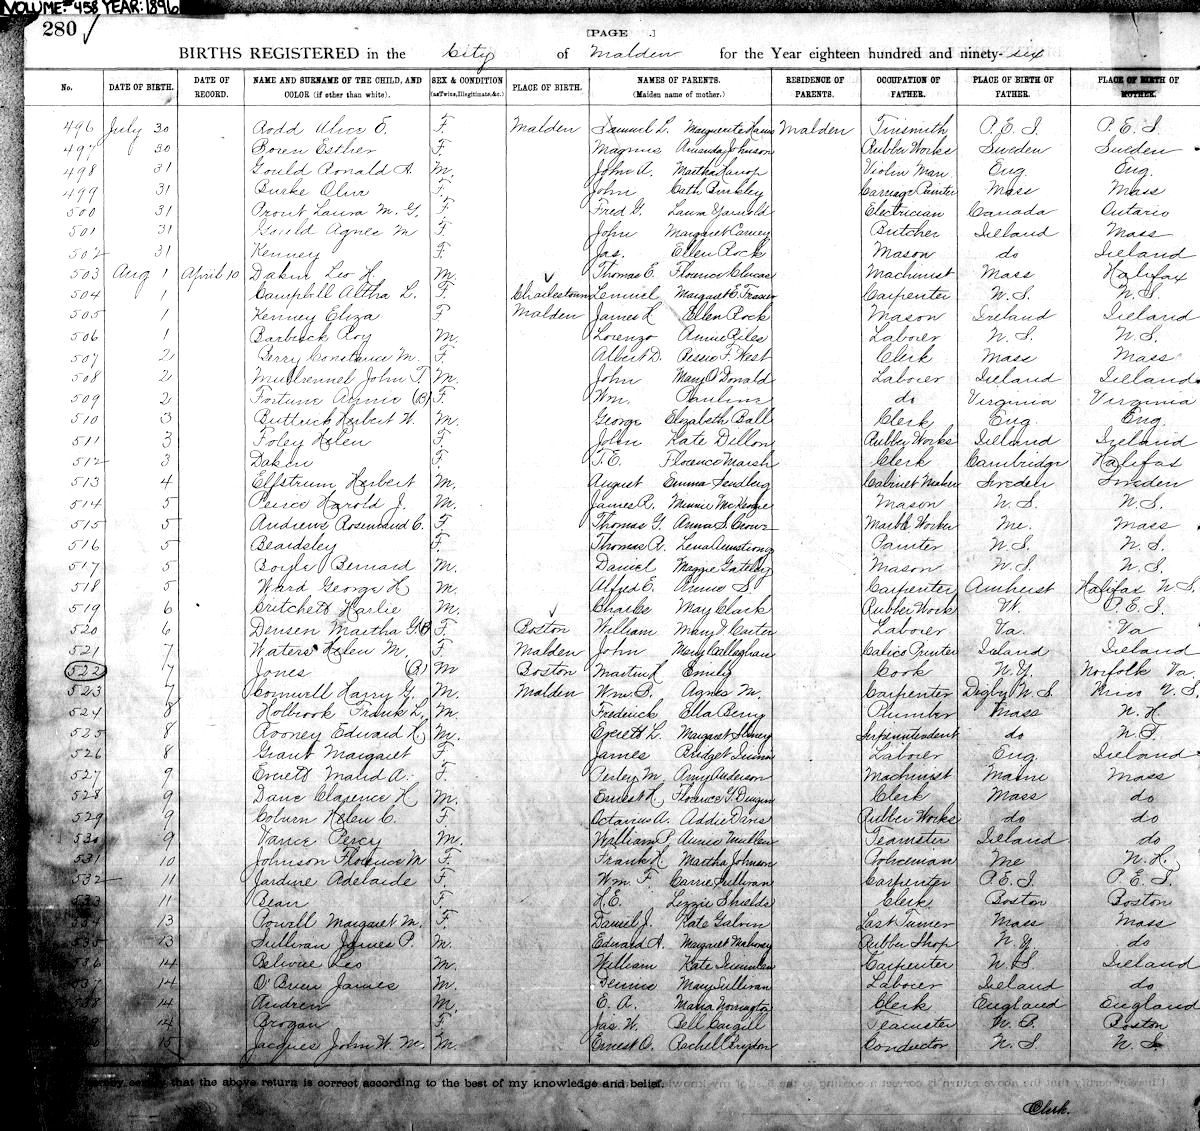 VOLUME: 458 YEAR: 1896
280
[PAGE .]
BIRTHS REGISTERED in the City of Malden for the Year eighteen hundred and ninety-six
No. DATE OF BIRTH. DATE OF RECORD. NAME AND SURNAME OF THE CHILD, AND COLOR (if other than white). SEX & CONDITION (as Twins, Illegitimate, &c.) PLACE OF BIRTH. NAMES OF PARENTS. (Maiden name of mother.) RESIDENCE OF PARENTS. OCCUPATION OF FATHER. PLACE OF BIRTH OF FATHER. PLACE OF BIRTH OF MOTHER.
496 July 30 Rodd Alice E. F. Malden Samuel L. Malden Tinsmith P.E.I. P.E.I.
497 30 Boren Esther F. Magnus Amanda Johnson Rubber Works Sweden Sweden
498 31 Gould Ronald A. M. John A. Martha Violin Man. Eng. Eng.
499 31 Burke F. John Cath. Carriage Painter Mass Mass
500 31 Prout Laura M. G. F. Fred G. Laura Electrician Canada Ontario
501 31 Gould Agnes M F. John Margaret Butcher Ireland Mass
502 31 Kenney F. Jas. Ellen Rock Mason do Ireland
503 Aug 1 April 10 Dakin Leo H. M. Thomas E. Florence Machinist Mass Halifax
504 1 Campbell Altha L. F. Charlestown Lemuel Margaret E. Frasier Carpenter N.S. N.S.
505 1 Kenney Eliza F Malden James H Ellen Rock Mason Ireland Ireland
506 1 Barbrick Roy M. Lorenzo Annie Laborer N.S. N.S.
507 2 Perry Constance M. F. Albert D. Bessie F. West Clerk Mass Mass
508 2 John T. M. John Mary O'Donald Laborer Ireland Ireland
509 2 Fortune Annie (B) F. Wm. Paulina do Virginia Virginia
510 3 Buttrick Herbert W. M. George Elizabeth Ball Clerk Eng Eng.
511 3 Foley Helen F. John Kate Dillon Rubber Works Ireland Ireland
512 3 Dakin F. T.E. Florence Marsh Clerk Cambridge Halifax
513 4 Elfstrum Herbert M. August Emma Cabinet Maker Sweden Sweden
514 5 Peirce Harold J. M. James R. Minnie McKenzie Mason N.S. N.S.
515 5 Andrews Rosemand C. F. Thomas G. Anna S. Marble Worker Me. Mass
516 5 Beardsley F. Thomas R. Lena Armstrong Painter N.S. N.S.
517 5 Boyle Bernard M. Daniel Maggie Mason N.S. N.S.
518 5 Ward George H M. Alfred E. Annie S. Carpenter Amherst Halifax N.S.
519 6 Critchett Harlie M. Charles May Clark Rubber Work Vt. P.E.I.
520 6 Densen Martha G. (B) F. Boston William Mary V. Carter Laborer Va. Va
521 7 Waters Helen M. F. Malden John Mary Callaghan Calico Printer Ireland Ireland
522 7 Jones (B) M Boston Martin H Emily Cook N.Y. Norfolk Va
523 7 Cornwell Harry G. M. Malden Wm. S. Agnes M. Carpenter Digby N.S.
524 8 Holbrook Frank L. M. Frederick Ella Berry Plumber Mass N.H.
525 8 Rooney Edward H M. Everett L. Margaret Superintendent do N.S.
526 8 Grant Margaret F. James Bridget Quinn Laborer Eng. Ireland
527 9 Everett Maud A. F. Perley M. Amy Anderson Machinist Maine Mass
528 9 Dane Clarence H M. Ernest H. Florence G. Clerk Mass do
529 9 Coburn Helen C. F. Octavius A. Addie Davis Rubber Works do do
530 9 Vance Percy M. William P. Annie Mullen Teamster Ireland do
531 10 Johnson Florence M F. Frank H. Martha Johnson Policeman Me N.H.
532 11 Jardine Adelaide F. Wm. F. Carrie Sullivan Carpenter P.E.I. P.E.I.
533 11 Bean F. H.E. Lizzie Shields Clerk Boston Boston
534 13 Powell Margaret M. F. Daniel J. Kate Galvin Last Turner Mass Mass
535 13 Sullivan James P. M. Edward A. Margaret Mahoney Rubber Shop N.Y. do
536 14 Belivue Leo M. William Kate Carpenter N.S. Ireland
537 14 O'Brien James M. Dennis Mary Sullivan Laborer Ireland do
538 14 Andrew M. E. A. Maria Norrington Clerk England England
14 Brogan F. Jas. W. Bell Cargill Teamster N.B. Boston
15 Jacques John W. M. M. Ernest O. Rachel Brydon Conductor N.S. N.S.
hereby certify that the above return is correct according to the best of my knowledge and belief.
Clerk.